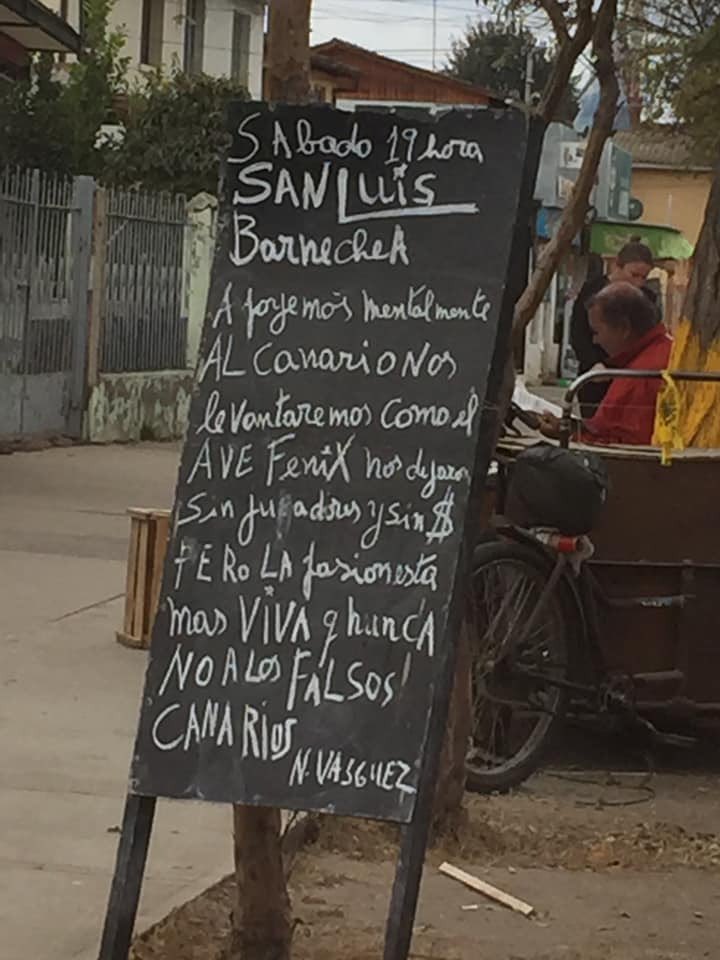 SAbado 19 hora
SAN LUiS
BarnecheA
Apoyemos mentalmente
AL Canario Nos
levantaremos Como el
AVE FeniX nos dejaron
Sin jugadores y sin $
PERO LA pasion esta
mas ViVA q nunCA
NO A Los FALSOS!
CANARiOS
N. VASGUEZ